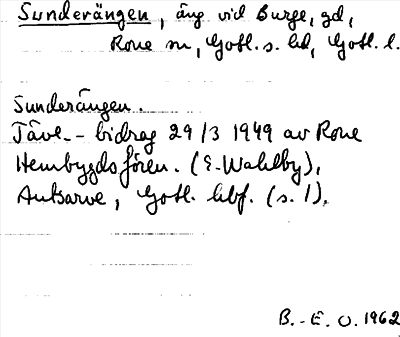 Sunderängen, äng vid Burge, gd,
Rone sn, Gotl. s. hd, Gotl. l.
Sunderängen.
Täv. - bidrag 29/3 1949 av Rone
Hembygdsfören. (E. Wahlby),
Autsarve, Gotl. hbf. (s. 1).
B. - E. O. 1962